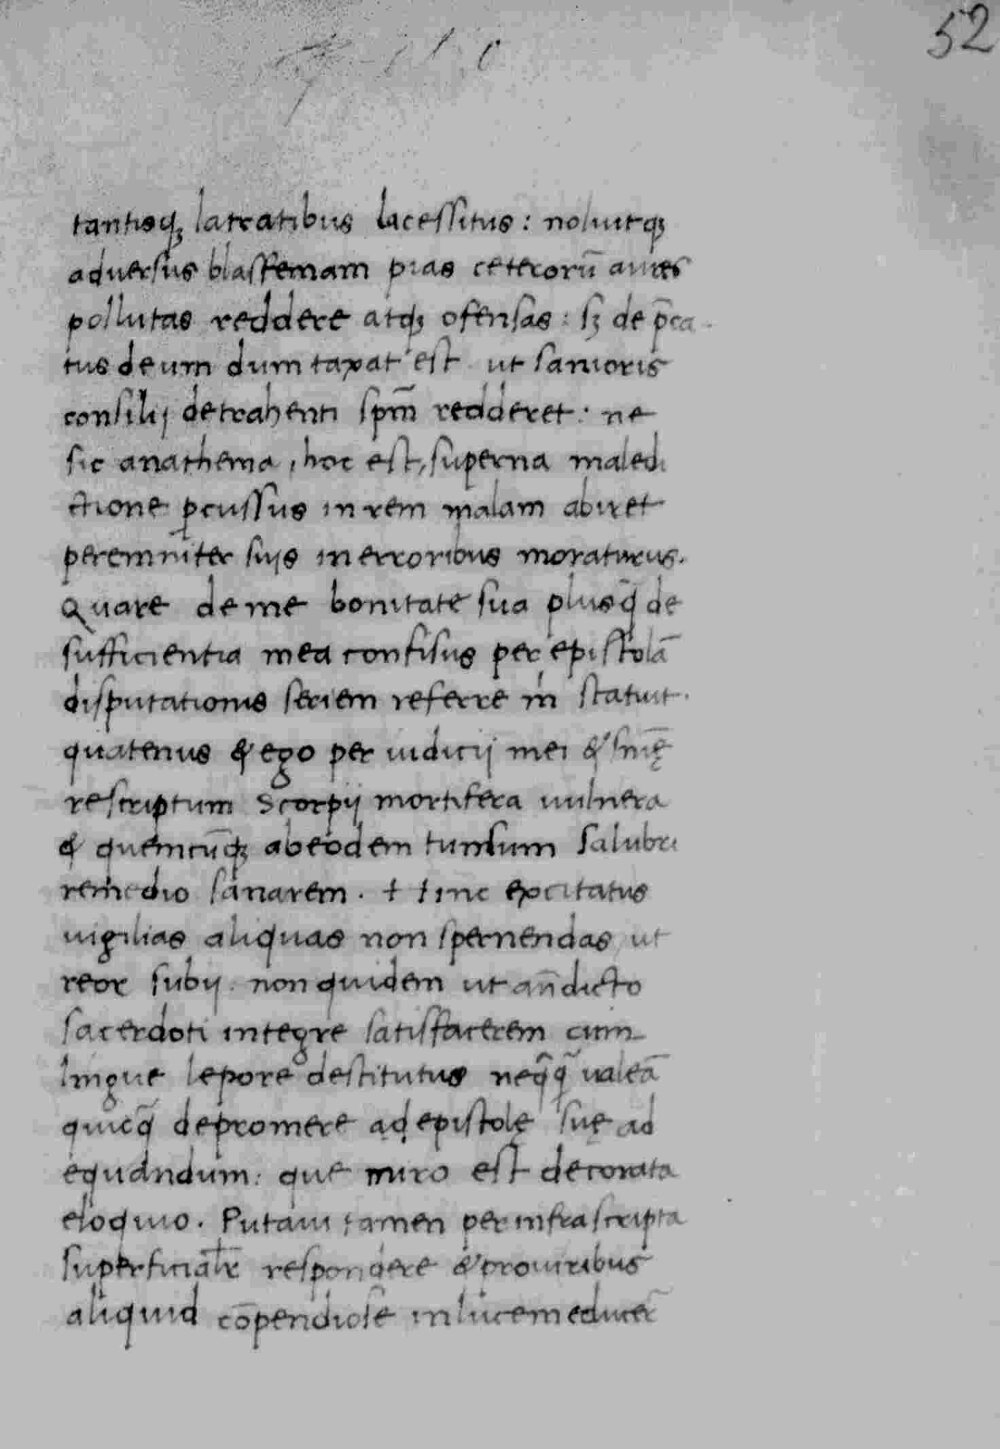 52
tantisq₃ latratibus lacessitus: noluitq₃
aduersus blasfemam pias ceterorū aures
pollutas reddere atq₃ ofensas: s₃ de p̄ca
tus deum dum taxat est ut sanioris
consilij detrahenti spm̄ redderet: ne
sic anathema, hoc est, superna maledi
ctione ꝑcussus in rem malam abiret
peremniter suis in erroribus moraturus.
Quare de me bonitate sua plusq̄ de
sufficientia mea confisus per epistolā
disputationis seriem referre m̄ statuit.
quatenus & ego per iudicij mei & snīę
rescriptum Scorpij mortifera uulnera
& quemcūq₃ ab eodem tumsum salubri
remedio sanarem. Hinc excitatus
uigilias aliquas non spernendas, ut
reor subij. non quidem ut an̄dicto
sacerdoti integre satisfacerem cum
lingue lepore destitutus neq̄q̄ ualeā
quicq̄ depromere ad epistolę suę ad
equandum: que miro est decorata
eloquio. Putaui tamen per infrascripta
superficialr̄ respondere & pro uiribus
aliquid cōpendiose in lucem educer̄